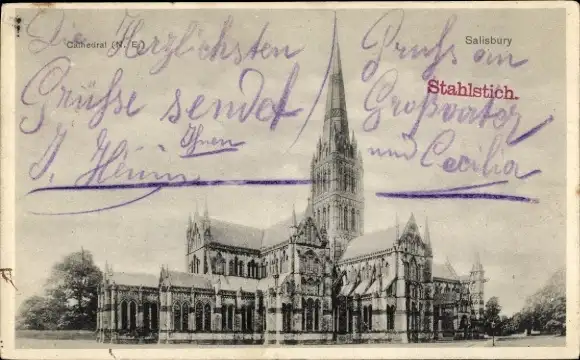 Cathedral (N. E.)
Salisbury
Stahlstich.
Die Herzlichsten
Grüsse sendet
Ihnen
J. Heim
Gruss an
Grossvater
und Cecilia